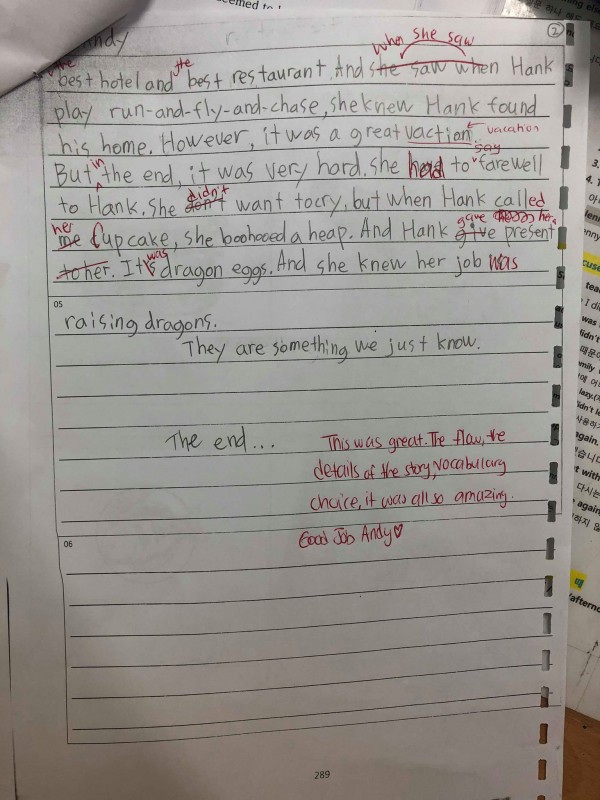 ②
when she saw
the the
best hotel and best restaurant. And she saw when Hank
play run-and-fly-and-chase, she knew Hank found
his home. However, it was a great vaction. vacation
in say
But the end, it was very hard. she had to farewell
didn't
to Hank. She don't want to cry, but when Hank called
her gave her a
me Cupcake, she boohooed a heap. And Hank give present
was
to her. It's dragon eggs. And she knew her job was
05
raising dragons.
They are something we just know.
The end...
This was great. The flow, the
details of the story, vocabulary
choice, it was all so amazing.
Good Job Andy♡
06
289